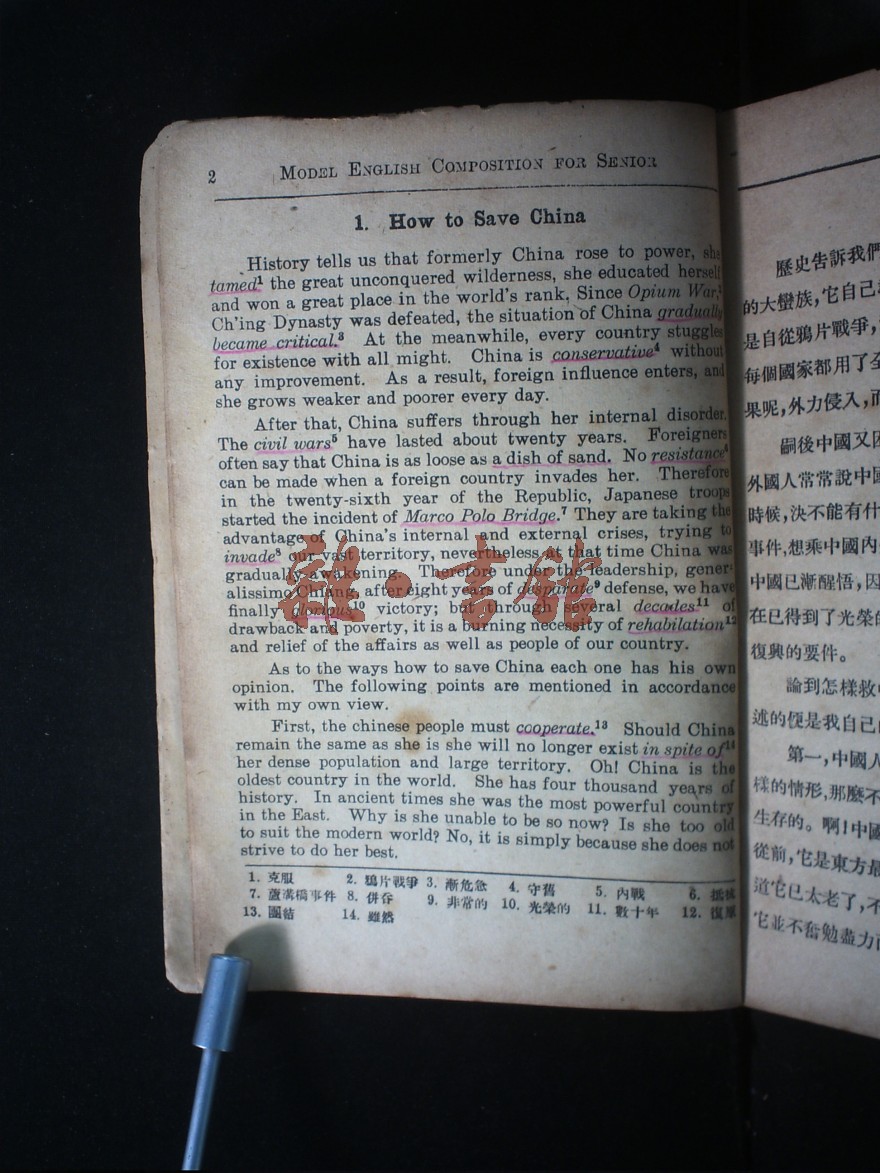 2 MODEL ENGLISH COMPOSITION FOR SENIOR
1. How to Save China
History tells us that formerly China rose to power, she
tamed¹ the great unconquered wilderness, she educated herself
and won a great place in the world's rank. Since Opium War,²
Ch'ing Dynasty was defeated, the situation of China gradually
became critical.³ At the meanwhile, every country stuggles
for existence with all might. China is conservative⁴ without
any improvement. As a result, foreign influence enters, and
she grows weaker and poorer every day.
After that, China suffers through her internal disorder.
The civil wars⁵ have lasted about twenty years. Foreigners
often say that China is as loose as a dish of sand. No resistance⁶
can be made when a foreign country invades her. Therefore
in the twenty-sixth year of the Republic, Japanese troops
started the incident of Marco Polo Bridge.⁷ They are taking the
advantage of China's internal and external crises, trying to
invade⁸ our vast territory, nevertheless at that time China was
gradually awakening. Therefore under the leadership, gener-
alissimo Chiang, after eight years of desparate⁹ defense, we have
finally glorious¹⁰ victory; but through several decades¹¹ of
drawback and poverty, it is a burning necessity of rehabilation¹²
and relief of the affairs as well as people of our country.
As to the ways how to save China each one has his own
opinion. The following points are mentioned in accordance
with my own view.
First, the chinese people must cooperate.¹³ Should China
remain the same as she is she will no longer exist in spite of¹⁴
her dense population and large territory. Oh! China is the
oldest country in the world. She has four thousand years of
history. In ancient times she was the most powerful country
in the East. Why is she unable to be so now? Is she too old
to suit the modern world? No, it is simply because she does not
strive to do her best.
1. 克服 2. 鴉片戰爭 3. 漸危急 4. 守舊 5. 內戰 6. 抵抗
7. 蘆溝橋事件 8. 併吞 9. 非常的 10. 光榮的 11. 數十年 12. 復原
13. 團結 14. 雖然
歷史告訴我們
的大蠻族,它自己
是自從鴉片戰爭,
每個國家都用了全
果呢,外力侵入,而
嗣後中國又因
外國人常常說中國
時候,決不能有什
事件,想乘中國內
中國已漸醒悟,因
在已得到了光榮的
復興的要件。
論到怎樣救中
述的便是我自己的
第一,中國人
樣的情形,那麼不
生存的。啊!中國
從前,它是東方最
道它已太老了,不
它並不奮勉盡力而
書館